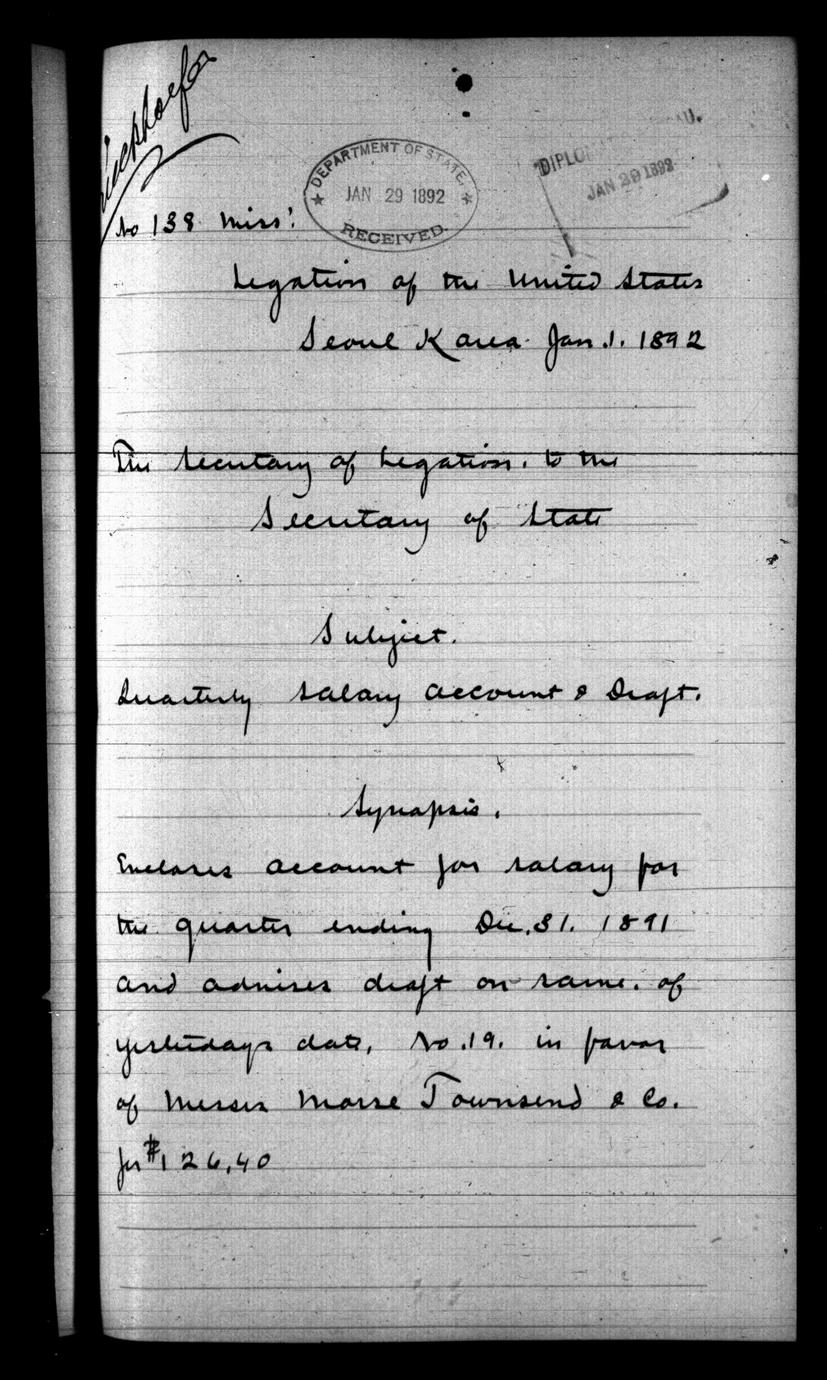 DEPARTMENT OF STATE.
JAN 29 1892
RECEIVED
JAN 29 1892
No 138 Miss'.
Legation of the United States
Seoul Korea Jan. 1. 1892
The Secretary of Legation, to the
Secretary of State
Subject.
Quarterly Salary account & Draft.
Synopsis.
Encloses account for salary for
the quarter ending Dec. 31. 1891
and advises draft on same, of
yesterdays date, No. 19. in favor
of Messrs Morse Townsend & Co.
for $126.40